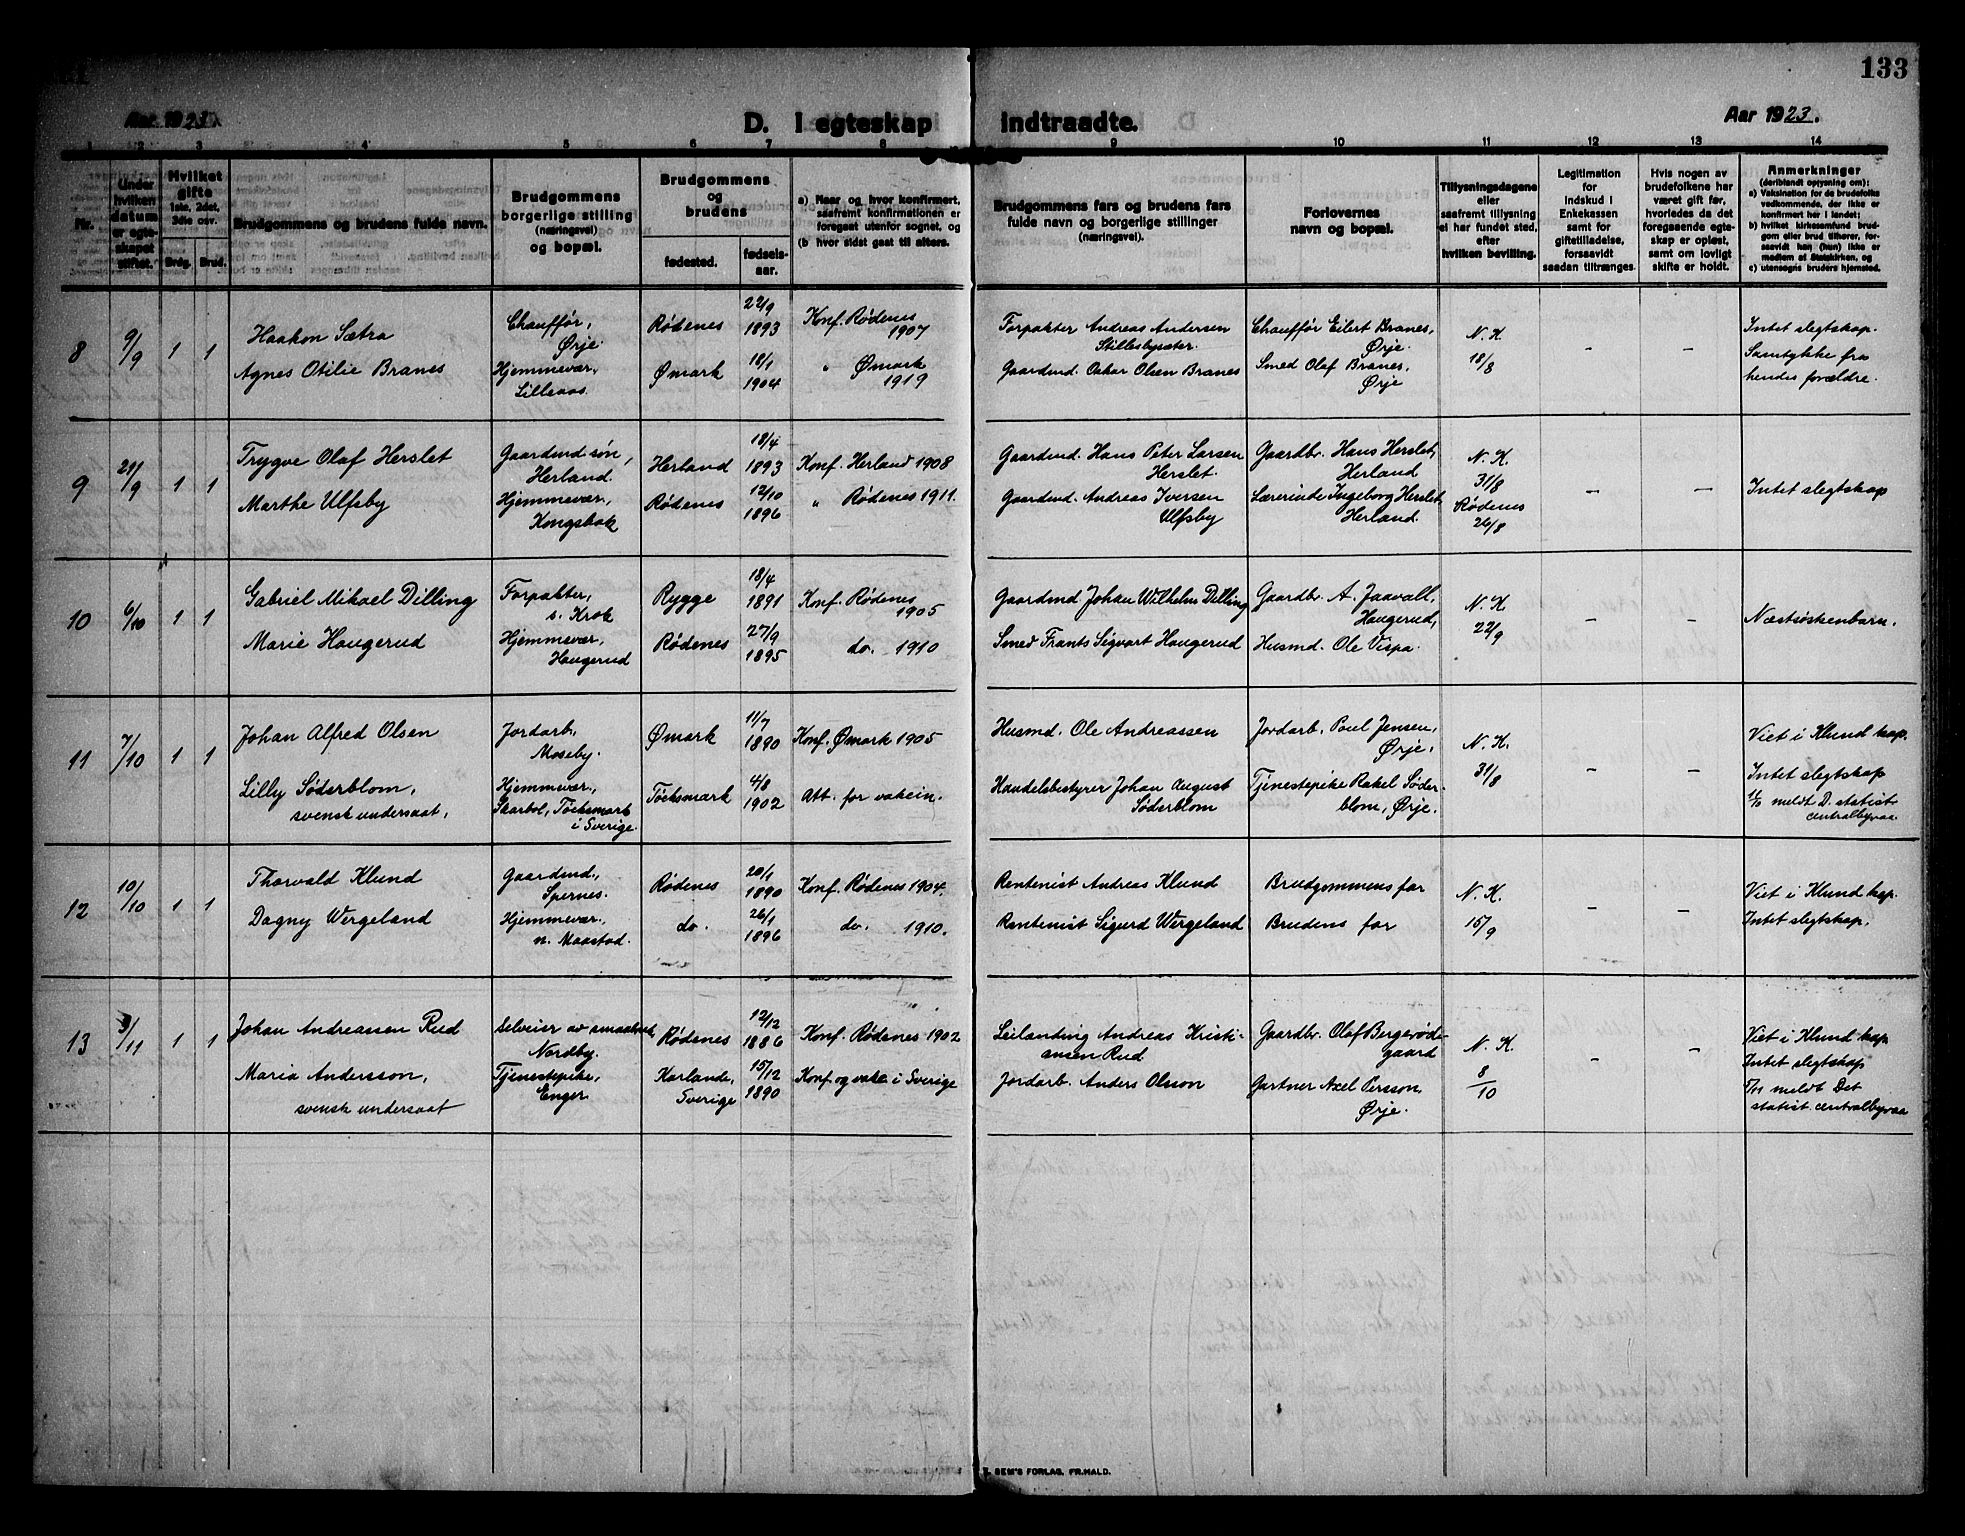 133
Aar 1923.
D. I egteskap indtraadte.
Aar 1923.
1 2 3 4 5 6 7 8 9 10 11 12 13 14
Nr.
Under
hvilken
datum
er egte-
skapet
stiftet.
Hvilket
gifte
1ste, 2det,
3die osv.
Brdg. Brud.
Brudgommens og brudens fulde navn.
Brudgommens
borgerlige stilling
(næringsvei)
og bopæl.
Brudgommens
og
brudens
fødested.
fødsels-
aar.
a) Naar og hvor konfirmert,
saafremt konfirmationen er
foregaat utenfor sognet, og
(b hvor sidst gaat til alters.
Brudgommens fars og brudens fars
fulde navn og borgerlige stillinger
(næringsvei).
Forlovernes
navn og bopæl.
Tillysningsdagene
eller
saafremt tillysning
ei har fundet sted,
efter
hvilken bevilling.
Legitimation
for
indskud i
Enkekassen
samt for
giftetilladelse,
forsaavidt
saadan tiltrænges.
Hvis nogen av
brudefolkene har
været gift før,
hvorledes da det
foregaaende egte-
skap er opløst,
samt om lovligt
skifte er holdt.
Anmerkninger
(deriblandt oplysning om):
a) Vaksination for de brudefolks
vedkommende, der ikke er
konfirmert her i landet;
b) hvilket kirkesamfund brud-
gom eller brud tilhører, for-
saavidt han (hun) ikke er
medlem af Statskirken, og
c) utensogns bruders hjemsted.
8 9/9 1 1
Haakon Sætra
Agnes Otilie Branes
Chauffør,
Ørje.
Hjemmevær.,
Lilleaas.
Rødenes
Ømark
22/9
1893
18/1
1904
Konf. Rødenes
1907
" Ømark
1919
Forpakter Andreas Andersen
Stillesbysæter.
Gaardmd. Oskar Olsen Branes
Chauffør Eilert Branes,
Ørje.
Smed Olaf Branes,
Ørje
N. K.
18/8
-
-
Intet slegtskap.
Samtykke fra
hendes forældre.
9 21/9 1 1
Trygve Olaf Herslet
Marthe Ulfsby
Gaardmd søn,
Herland.
Hjemmevær.,
Kongsbok
Herland
Rødenes
18/4
1893
12/10
1896
Konf. Herland 1908
" Rødenes 1911.
Gaardmd. Hans Peter Larsen
Herslet.
Gaardmd. Andreas Iversen
Ulfsby
Gaardbr. Hans Herslet,
Herland
Lærerinde Ingeborg Herslet,
Herland.
N. K.
31/8
Rødenes
26/8
-
-
Intet slegtskap
10 6/10 1 1
Gabriel Mikael Dilling
Marie Haugerud
Forpakter,
s. Krok
Hjemmevær.
Haugerud
Rygge
Rødenes
18/4
1891
27/9
1895
Konf. Rødenes
1905
do. 1910
Gaardmd Johan Wilhelm Dilling
Smed Frants Sigvart Haugerud
Gaardbr. A. Jaavall,
Haugerud,
Husmd. Ole Vispa.
N. K.
22/9
-
-
Næstsøskenbarn.
11 7/10 1 1
Johan Alfred Olsen
Lilly Søderblom,
svensk undersaat,
Jordarb.,
Moseby.
Hjemmevær.,
Skarbol, Töcksmark
i Sverige.
Ømark
Töcksmark
11/7
1890
4/8
1902
Konf. Ømark 1905
Att. for vakcin.
Husmd. Ole Andreassen
Handelsbestyrer Johan August
Søderblom
Jordarb. Poul Jensen,
Ørje.
Tjenestepike Rakel Søder-
blom, Ørje.
N. K.
31/8
-
-
Viet i Klund kap.
Intet slegtskap
meldt D. statist.
centralbyraa.
12 10/10 1 1
Thorvald Klund
Dagny Wergeland
Gaardmd.,
Spernes.
Hjemmevær.
n. Maastad.
Rødenes
do.
20/1
1890
26/1
1896
Konf. Rødenes 1904.
do. 1910.
Rentenist Andreas Klund
Rentenist Sigurd Wergeland
Brudgommens far
Brudens far
N. K.
15/9
-
-
Viet i Klund kap.
Intet slegtskap.
13 3/11 1 1
Johan Andreassen Rud
Maria Andersson,
svensk undersaat
Selveier av smaabruk
Nordby.
Tjenestepike,
Enger.
Rødenes
Karlanda,
Sverige
12/12
1886
15/12
1890
Konf. Rødenes 1902
Konf. og vakc. i Sverige
Leilænding Andreas Kristi-
ansen Rud
Jordarb. Anders Olsson
Gaardbr. Olaf Bergerød-
gaard
Gartner Axel Persson,
Ørje.
N. K.
8/10
-
-
Viet i Klund kap
Intet slegtskap
meldt Det
statist. centralbyraa
E. SEM'S FORLAG, FR.HALD.